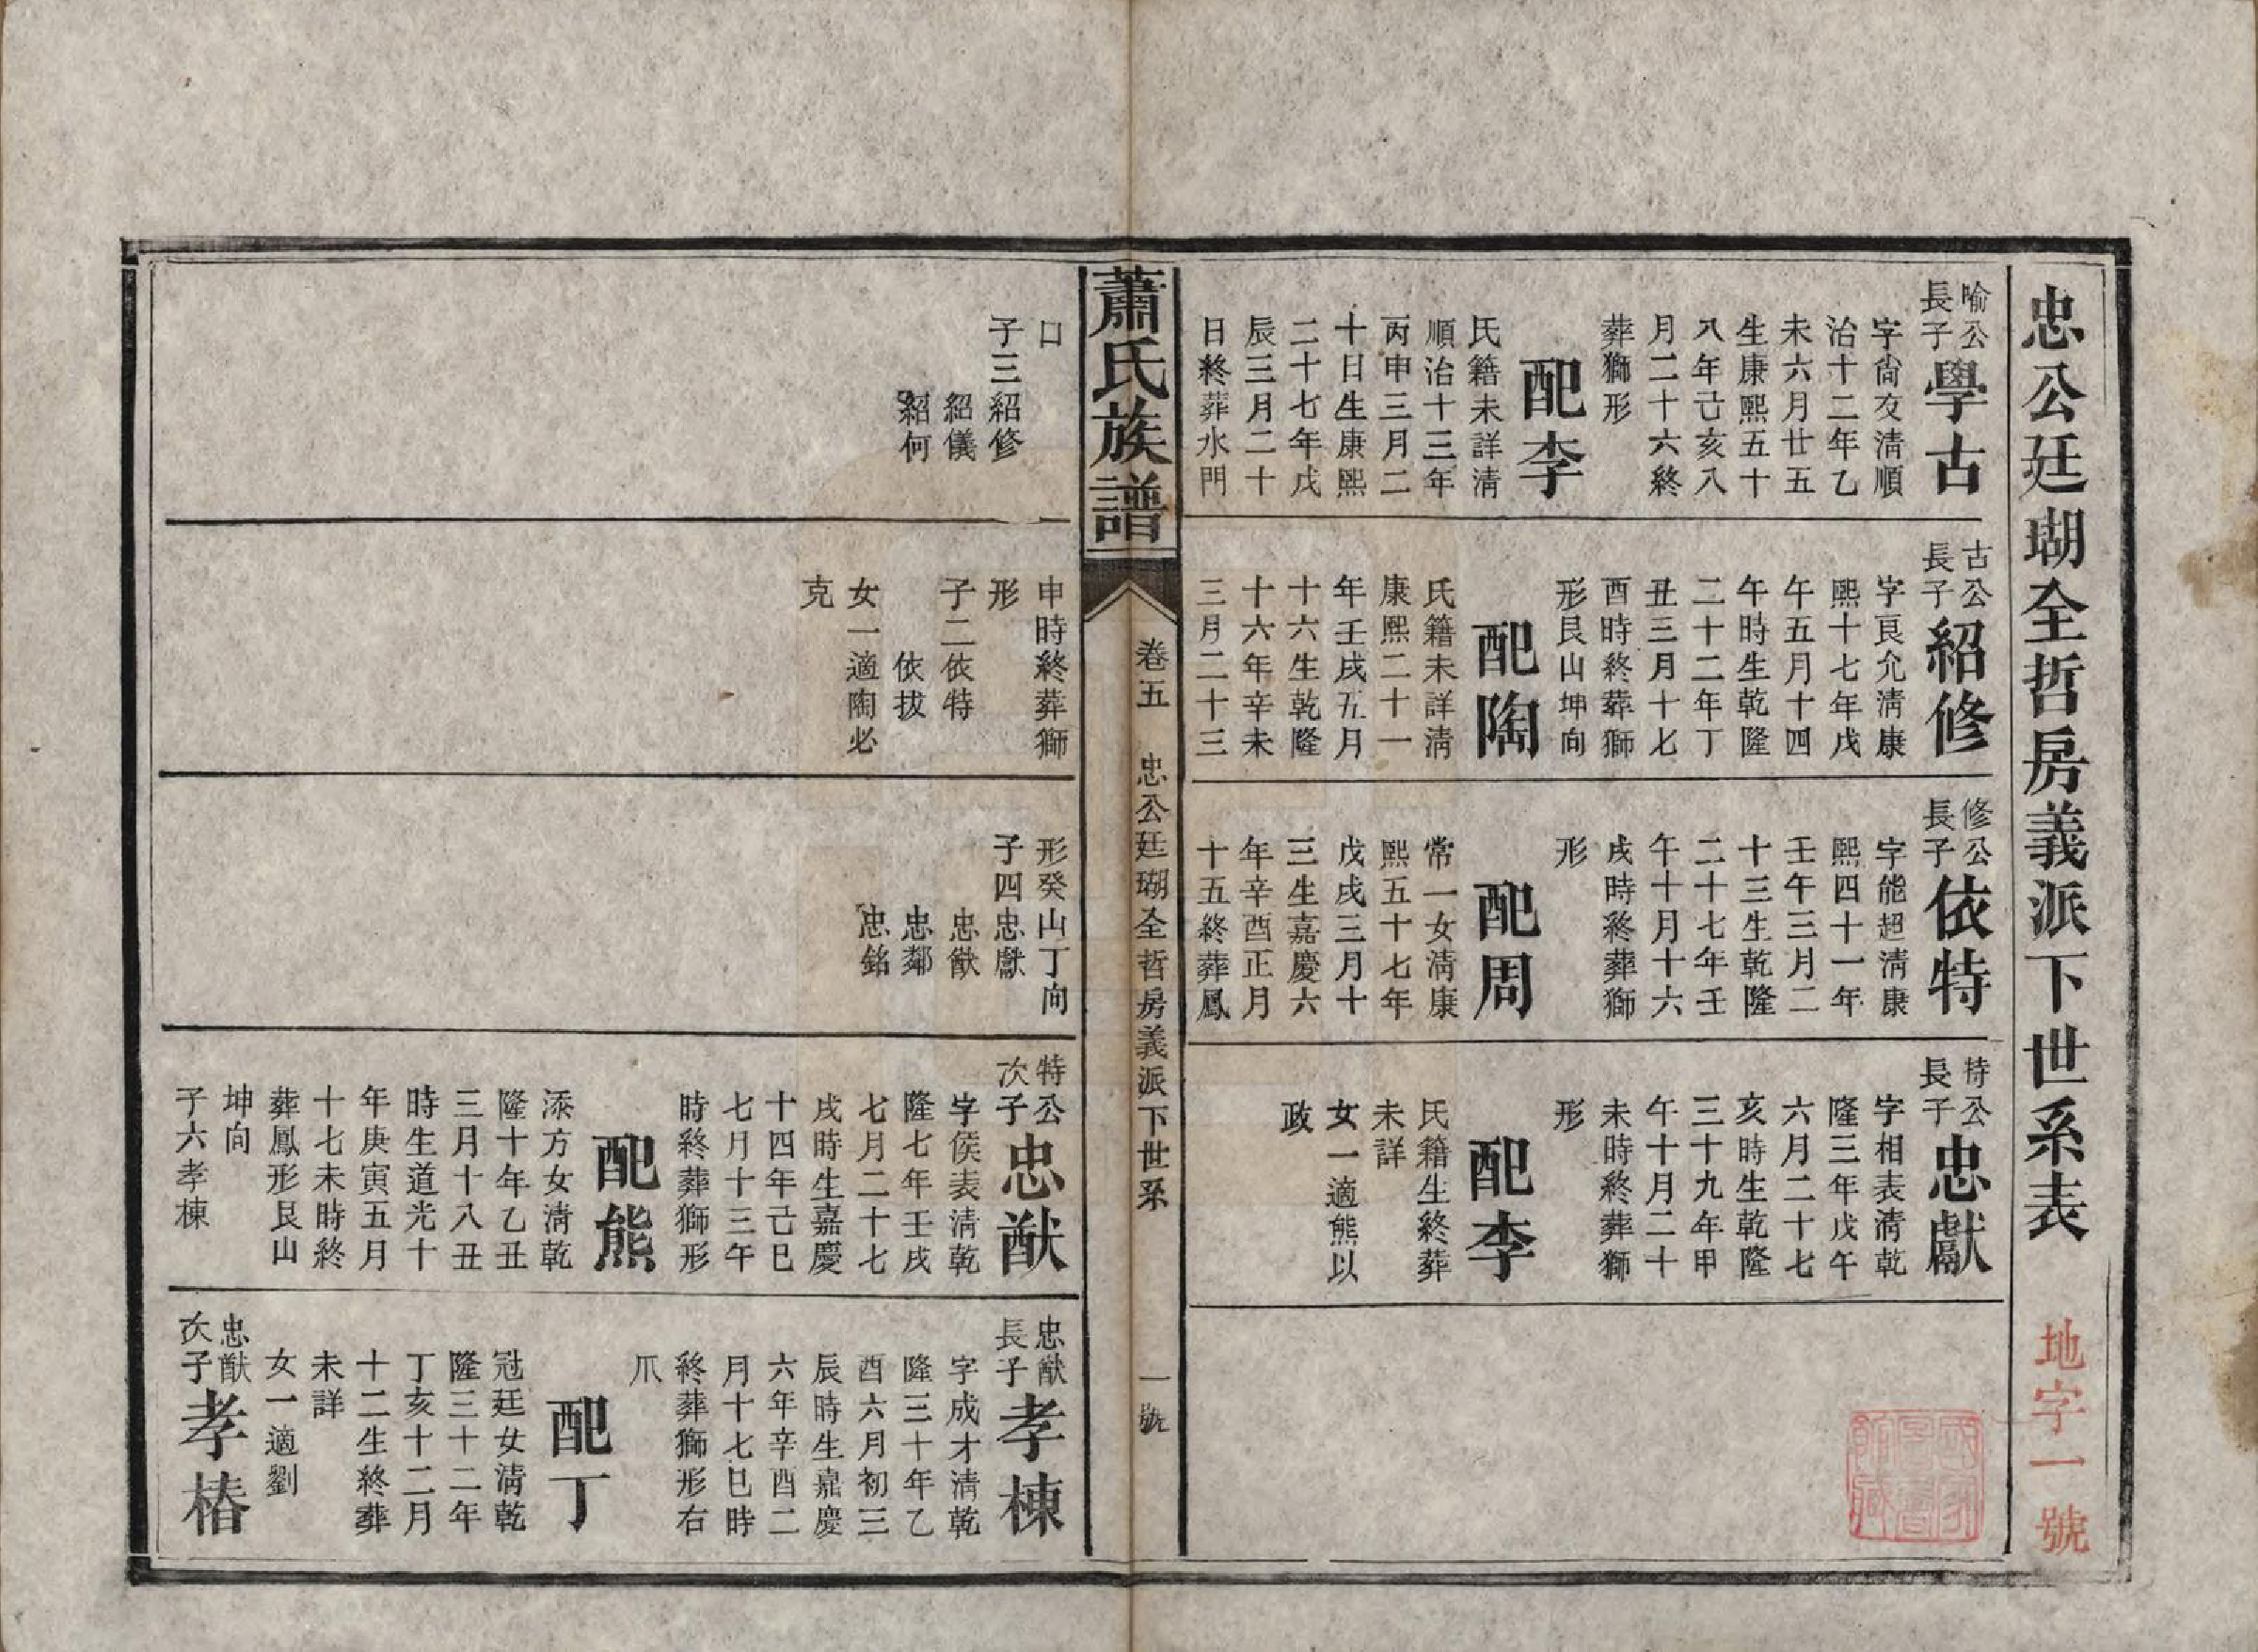 忠公廷瑚全哲房義派下世系表
地字一號
喻公
長子
學古
字尙友清順
治十二年乙
未六月廿五
生康熙五十
八年己亥八
月二十六終
葬獅形
配李
氏籍未詳清
順治十三年
丙申三月二
十日生康熙
二十七年戊
辰三月二十
日終葬水門
古公
長子
紹修
字良允清康
熙十七年戊
午五月十四
午時生乾隆
二十二年丁
丑三月十七
酉時終葬獅
形艮山坤向
配陶
氏籍未詳清
康熙二十一
年壬戌五月
十六生乾隆
十六年辛未
三月二十三
修公
長子
依特
字能超清康
熙四十一年
壬午三月二
十三生乾隆
二十七年壬
午十月十六
戌時終葬獅
形
配周
常一女清康
熙五十七年
戊戌三月十
三生嘉慶六
年辛酉正月
十五終葬鳳
特公
長子
忠獻
字相表清乾
隆三年戊午
六月二十七
亥時生乾隆
三十九年甲
午十月二十
未時終葬獅
形
配李
氏籍生終葬
未詳
女一適熊以
政
蕭氏族譜
卷五
忠公廷瑚全哲房義派下世系
一號
口
子三紹修
紹儀
紹何
申時終葬獅
形
子二依特
依拔
女一適陶必
克
形癸山丁向
子四忠獻
忠猷
忠鄰
忠銘
特公
次子
忠猷
字侯表清乾
隆七年壬戌
七月二十七
戌時生嘉慶
十四年己巳
七月十三午
時終葬獅形
配熊
添方女清乾
隆十年乙丑
三月十八丑
時生道光十
年庚寅五月
十七未時終
葬鳳形艮山
坤向
子六孝棟
忠猷
長子
孝棟
字成才清乾
隆三十年乙
酉六月初三
辰時生嘉慶
六年辛酉二
月十七巳時
終葬獅形右
爪
配丁
冠廷女清乾
隆三十二年
丁亥十二月
十二生終葬
未詳
女一適劉
忠猷
次子
孝椿